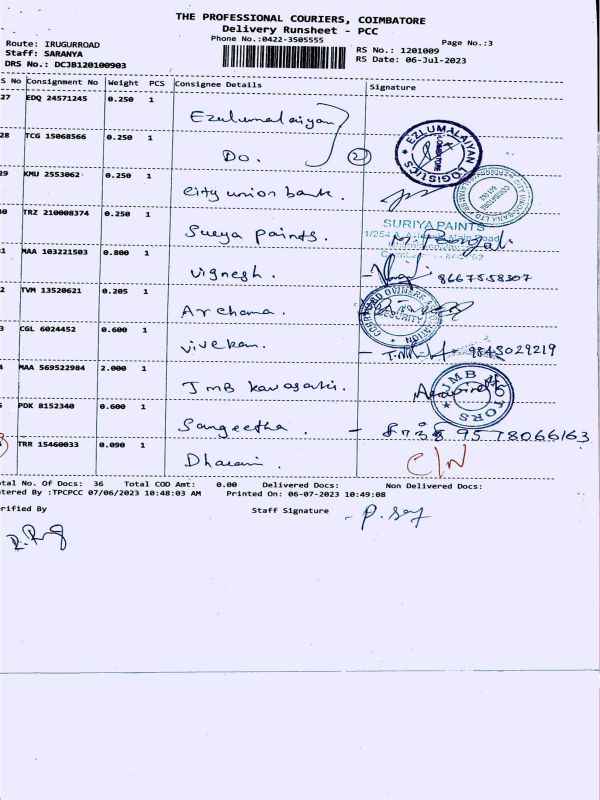 THE PROFESSIONAL COURIERS, COIMBATORE
Delivery Runsheet - PCC
Phone No.:0422-3505555
Page No.:3
Route: IRUGURROAD
Staff: SARANYA
DRS No.: DCJB120100903
RS No.: 1201009
RS Date: 06-Jul-2023
S No Consignment No Weight PCS Consignee Details Signature
27 EDQ 24571245 0.250 1 Ezulumalaiyan
28 TCG 15068566 0.250 1 Do. 2
EZLUMALAIYAN LOGISTICS COIMBATORE
29 KMU 2553062 0.250 1 City union bank.
0 TRZ 210008374 0.250 1 Surya paints.
SURIYA PAINTS
1 MAA 103221503 0.800 1 Vignesh. 8667558307
2 TVM 13520621 0.205 1 Archana.
SECURITY
3 CGL 6024452 0.600 1 Vivekan. 9843029219
4 MAA 569522984 2.000 1 JMB kawasaki.
JMB MOTORS
5 PDK 8152340 0.600 1 Sangeetha. - 95 78066163
TRR 15460033 0.090 1 Dharani. C/N
otal No. Of Docs: 36 Total COD Amt: 0.00 Delivered Docs: Non Delivered Docs:
ntered By :TPCPCC 07/06/2023 10:48:03 AM Printed On: 06-07-2023 10:49:08
erified By Staff Signature